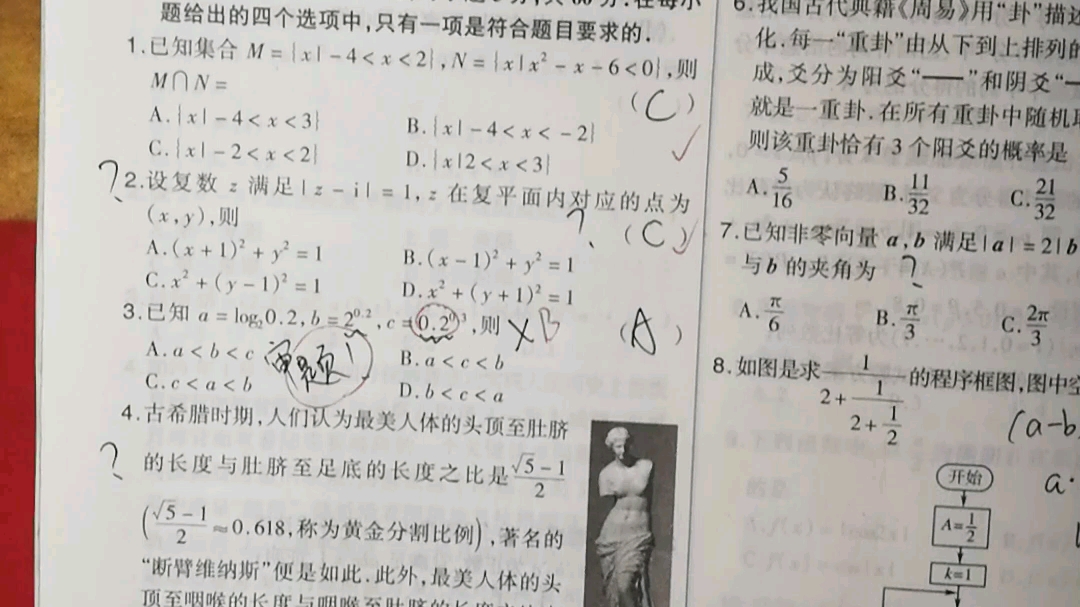 题给出的四个选项中,只有一项是符合题目要求的.
1.已知集合 M={x|-4<x<2},N={x|x²-x-6<0},则
M∩N=
(C)
A.{x|-4<x<3}
B.{x|-4<x<-2}
C.{x|-2<x<2}
D.{x|2<x<3}
?
2.设复数 z 满足|z-i|=1,z 在复平面内对应的点为
(x,y),则
?
(C)
A.(x+1)²+y²=1
B.(x-1)²+y²=1
C.x²+(y-1)²=1
D.x²+(y+1)²=1
3.已知 a=log₂0.2,b=2^0.2,c=0.2^0.3,则
XB
(A)
A.a<b<c
审题!
B.a<c<b
C.c<a<b
D.b<c<a
4.古希腊时期,人们认为最美人体的头顶至肚脐
?
的长度与肚脐至足底的长度之比是(√5-1)/2
((√5-1)/2≈0.618,称为黄金分割比例),著名的
“断臂维纳斯”便是如此.此外,最美人体的头
顶至咽喉的长度与咽喉至肚脐的长度
6.我国古代典籍《周易》用“卦”描述
化.每一“重卦”由从下到上排列的
成,爻分为阳爻“——”和阴爻“—
就是一重卦.在所有重卦中随机取
则该重卦恰有 3 个阳爻的概率是
A.5/16
B.11/32
C.21/32
7.已知非零向量 a,b 满足|a|=2|b
与 b 的夹角为
?
A.π/6
B.π/3
C.2π/3
8.如图是求1/(2+1/(2+1/2))的程序框图,图中空
(a-b
a·
开始
A=1/2
k=1